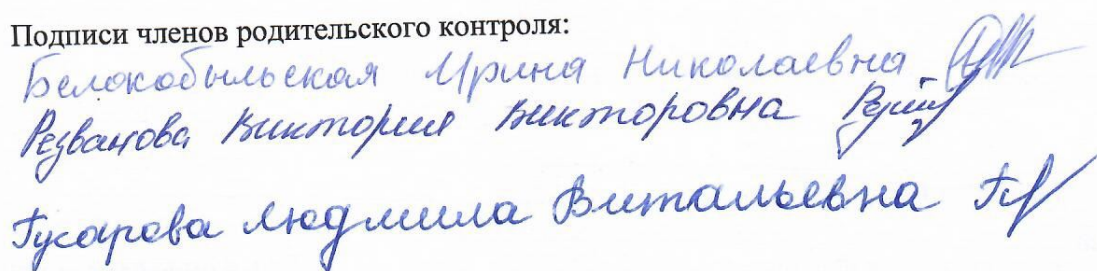 Подписи членов родительского контроля:
Белокобыльская Ирина Николаевна
Резванова Виктория Викторовна
Гусарова Людмила Витальевна